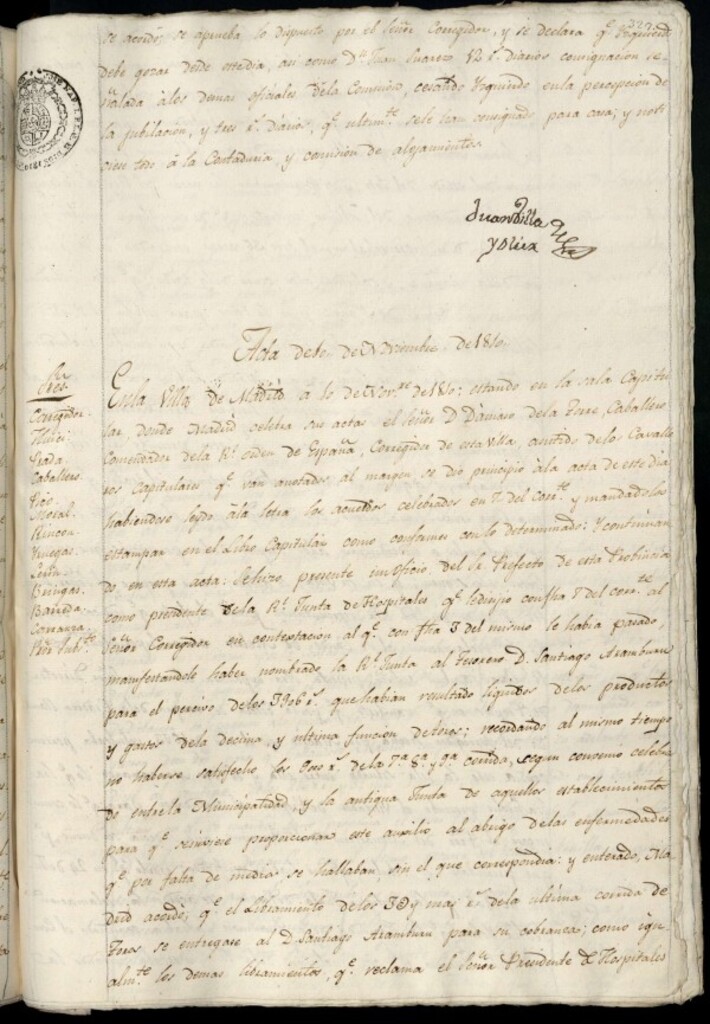 327
se acordó; se aprueba lo dispuesto por el Señor Corregidor, y se declara q.e Yzquierdo
debe gozar desde este dia, asi como D.n Juan Suarez 12 r.s diarios consignacion se-
ñalada à los demas oficiales dela Comision, cesando Yzquierdo en la percepcion de
la jubilacion, y tres r.s diarios, q.e ultim.te se le han consignado para casa; y noti
ciese todo à la Contaduria, y comision de alojamientos.
Juan Villa
y Olier
Acta de 10 de Noviembre de 1810.
S.res
Corregidor.
Prada.
Caballero.
Moral.
Rincon.
Bringas.
Barreda.
Carranza.
En la Villa de Madrid à 10 de Nov.re de 1810; estando en la sala Capitu
lar, donde Madrid celebra sus actas el Señor D Damaso dela Torre, Caballero
Comendador dela R.l orden de España, Corregidor de esta Villa, asistido delos Cavalle
ros Capitulares q.e van anotados al margen se dió principio à la acta de este dia
habiendose leydo à la letra los acuerdos celebrados en 7 del corr.te y mandadolos
estampar en el Libro Capitular como conformes con lo determinado: Y continuan
do en esta acta: Se hizo presente un oficio del Sr. Prefecto de esta Probincia
como presidente dela R.l Junta de Hospitales q.e le dirijio con fha 7 del corr.te al
Señor Corregidor en contestacion al q.e con fha 3 del mismo le habia pasado,
manifestandole haber nombrado la R.l Junta al Tesorero D. Santiago Aramburu
para el percivo delos 3906 r.s que habian resultado liquidos delos productos
y gastos dela decima, y ultima funcion de toros; recordando al mismo tiempo
no haberse satisfecho los r.s dela 7.a 8.a y 9.a corrida, segun convenio celebra
do entre la Municipalidad, y la antigua Junta de aquellos establecimientos
para q.e se sirviese proporcionar este auxilio al abrigo delas enfermedades
q.e por falta de medios se hallaban sin el que correspondia: y enterado, Ma
drid acordó, q.e el Libramiento delos 3D y mas r.s dela ultima corrida de
Toros se entregase al D. Santiago Aramburu para su cobranza; como igu-
alm.te los demas libramientos, q.e reclama el Señor Presidente de Hospitales